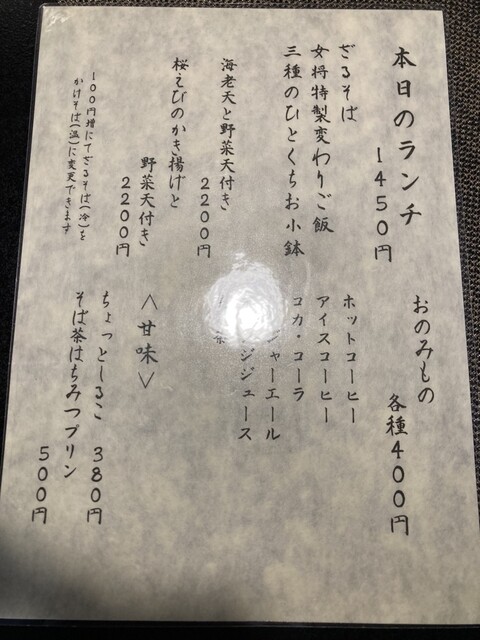 本日のランチ
1450円
ざるそば
女将特製変わりご飯
三種のひとくちお小鉢
海老天と野菜天付き
2200円
桜えびのかき揚げと
野菜天付き
2200円
100円増にてざるそば(冷)を
かけそば(温)に変更できます
おのみもの
各種400円
ホットコーヒー
アイスコーヒー
コカ・コーラ
ジャーエール
ジジュース
茶
<甘味>
ちょっとしるこ 380円
そば茶はちみつプリン
500円